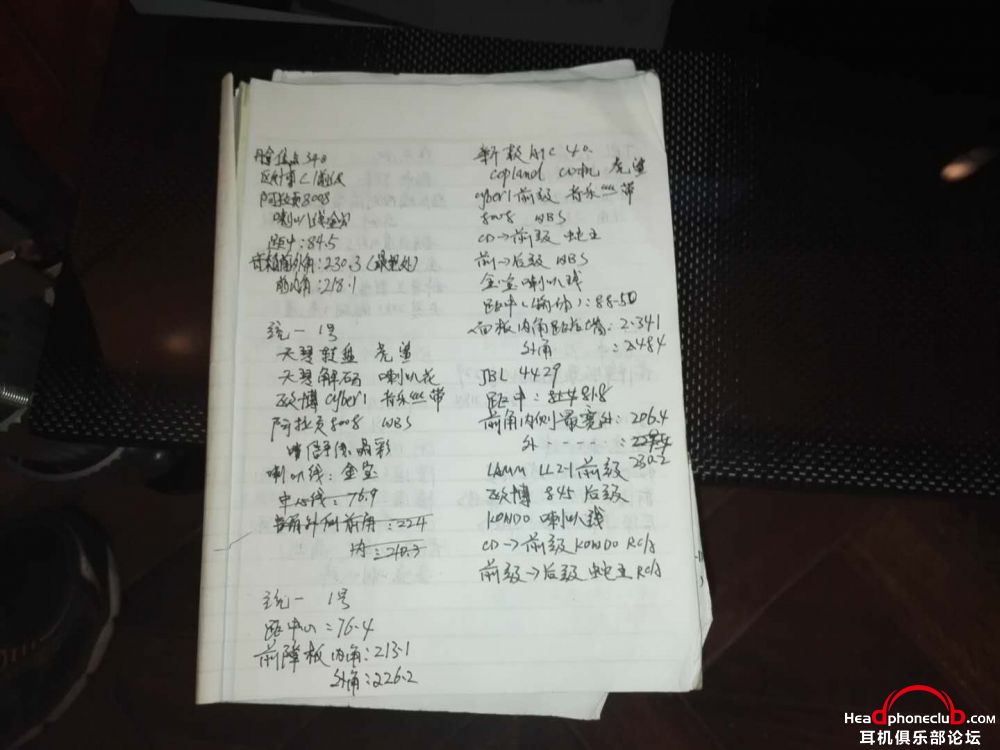 340
阿拉贡8008
喇叭线金宝
距中:84.5
音箱前外角:230.3(最宽处)
前内角:218.1
统一 1号
天琴转盘 虎鲨
天琴解码 喇叭花
欧博cyber1 音乐丝带
阿拉贡8008 WBS
喇叭线: 金宝
中心线:76.9
外侧前角:224
内:210.3
统一 1号
距中心:76.4
前障板内角:213.1
外角:226.2
新款ATC 40
Copland CD机 虎鲨
cyber1前级 音乐丝带
8008 WBS
CD→前级 蛇王
前→后级 WBS
金宝喇叭线
:88.50
面板内角距后墙:2.341
外角 :2.484
JBL 4429
距中:81.8
前角内侧最宽处:206.4
外 - - - - - :
230.2
LAMM LL2.1前级
欧博 845 后级
KONDO 喇叭线
CD→前级 KONDO RCA
前级→后级 蛇王RCA
Headphoneclub.com
耳机俱乐部论坛